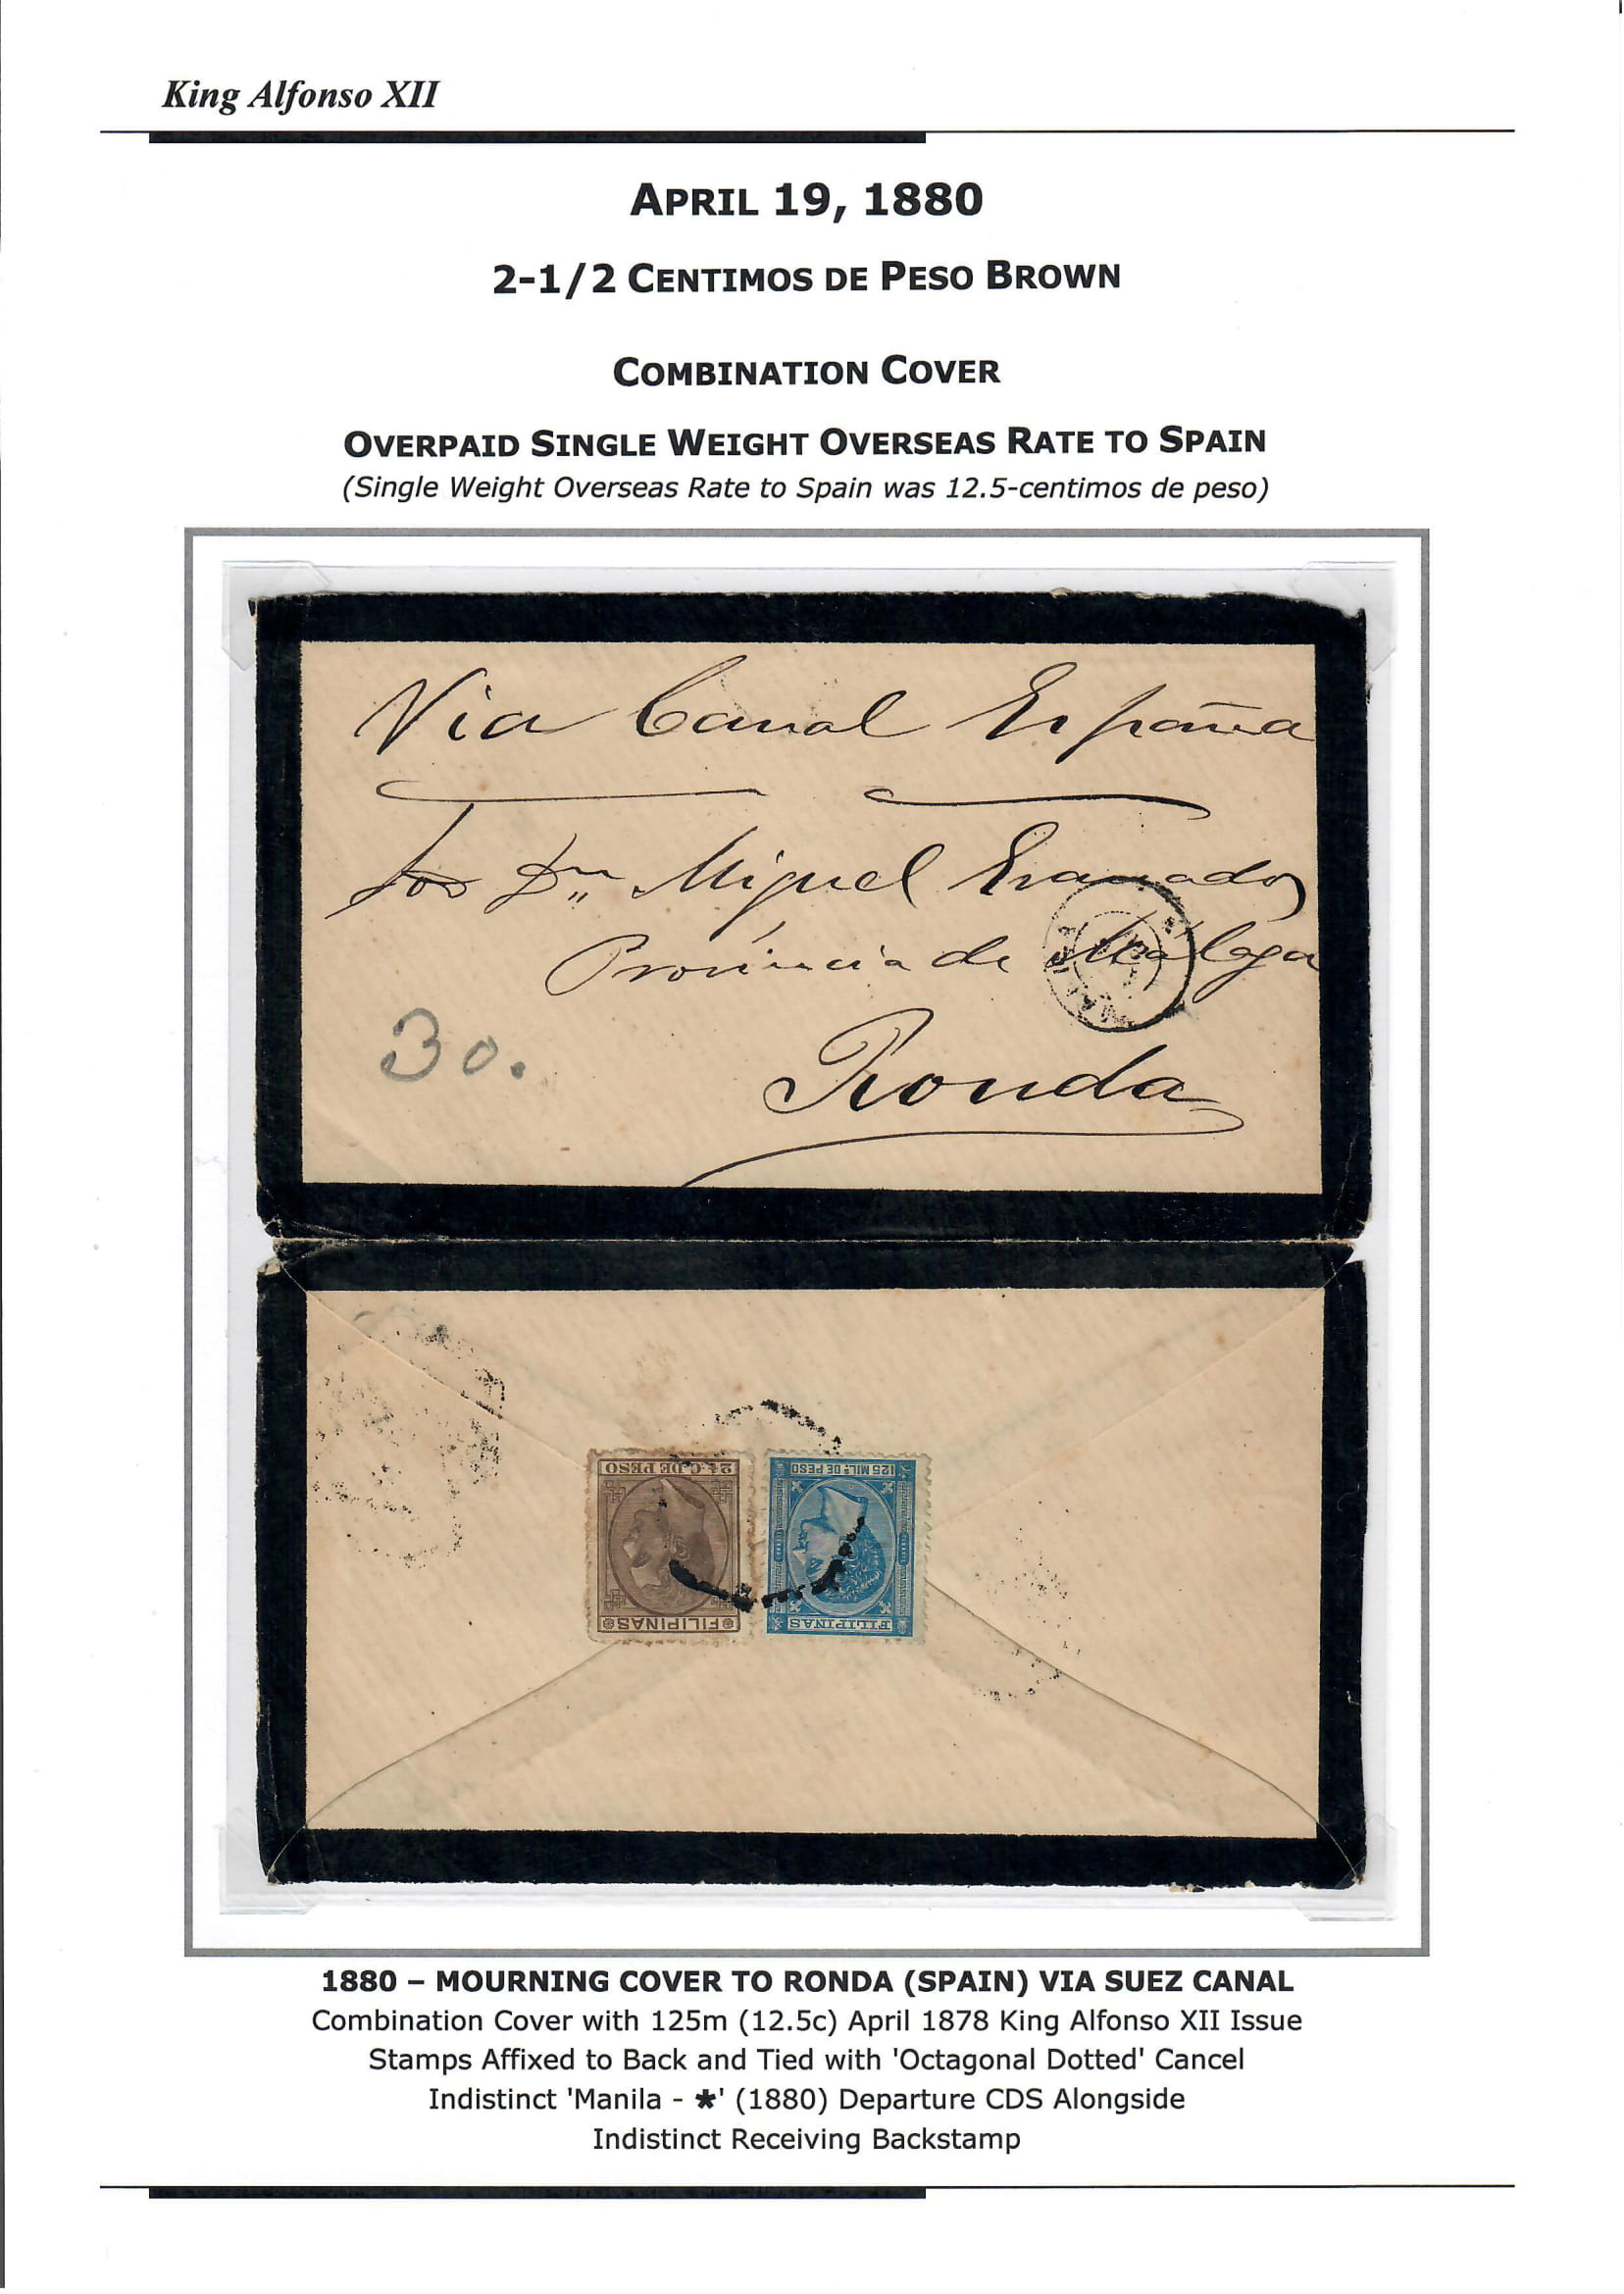 King Alfonso XII
APRIL 19, 1880
2-1/2 CENTIMOS DE PESO BROWN
COMBINATION COVER
OVERPAID SINGLE WEIGHT OVERSEAS RATE TO SPAIN
(Single Weight Overseas Rate to Spain was 12.5-centimos de peso)
Via Canal España
Dn Miguel Granados
Provincia de Málaga
30.
Ronda
2 4/8 C. DE PESO
125 MILS DE PESO
FILIPINAS
FILIPINAS
1880 – MOURNING COVER TO RONDA (SPAIN) VIA SUEZ CANAL
Combination Cover with 125m (12.5c) April 1878 King Alfonso XII Issue
Stamps Affixed to Back and Tied with 'Octagonal Dotted' Cancel
Indistinct 'Manila - *' (1880) Departure CDS Alongside
Indistinct Receiving Backstamp